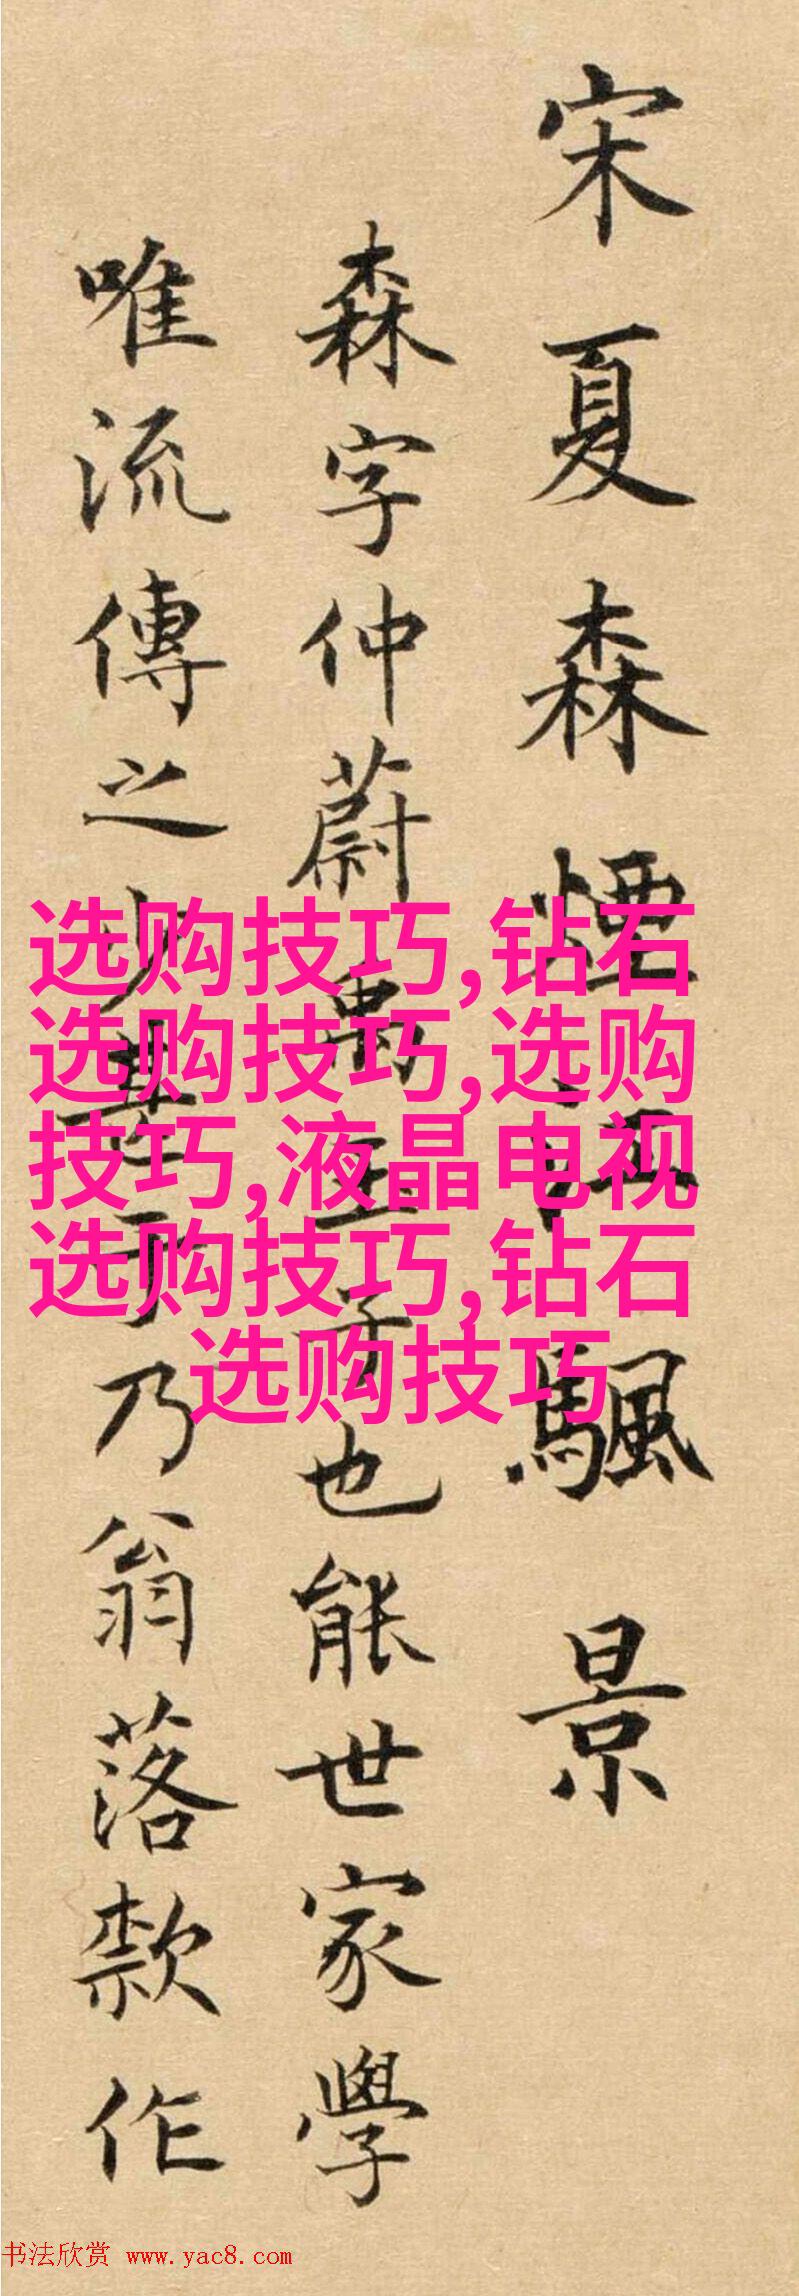 宋夏森煙江颿景
森字仲蔚禹玉子也能世家學
唯流傳之少甚于乃翁落欵作
选购技巧,钻石
选购技巧,选购
技巧,液晶电视
选购技巧,钻石
选购技巧
书法欣赏 www.yac8.com